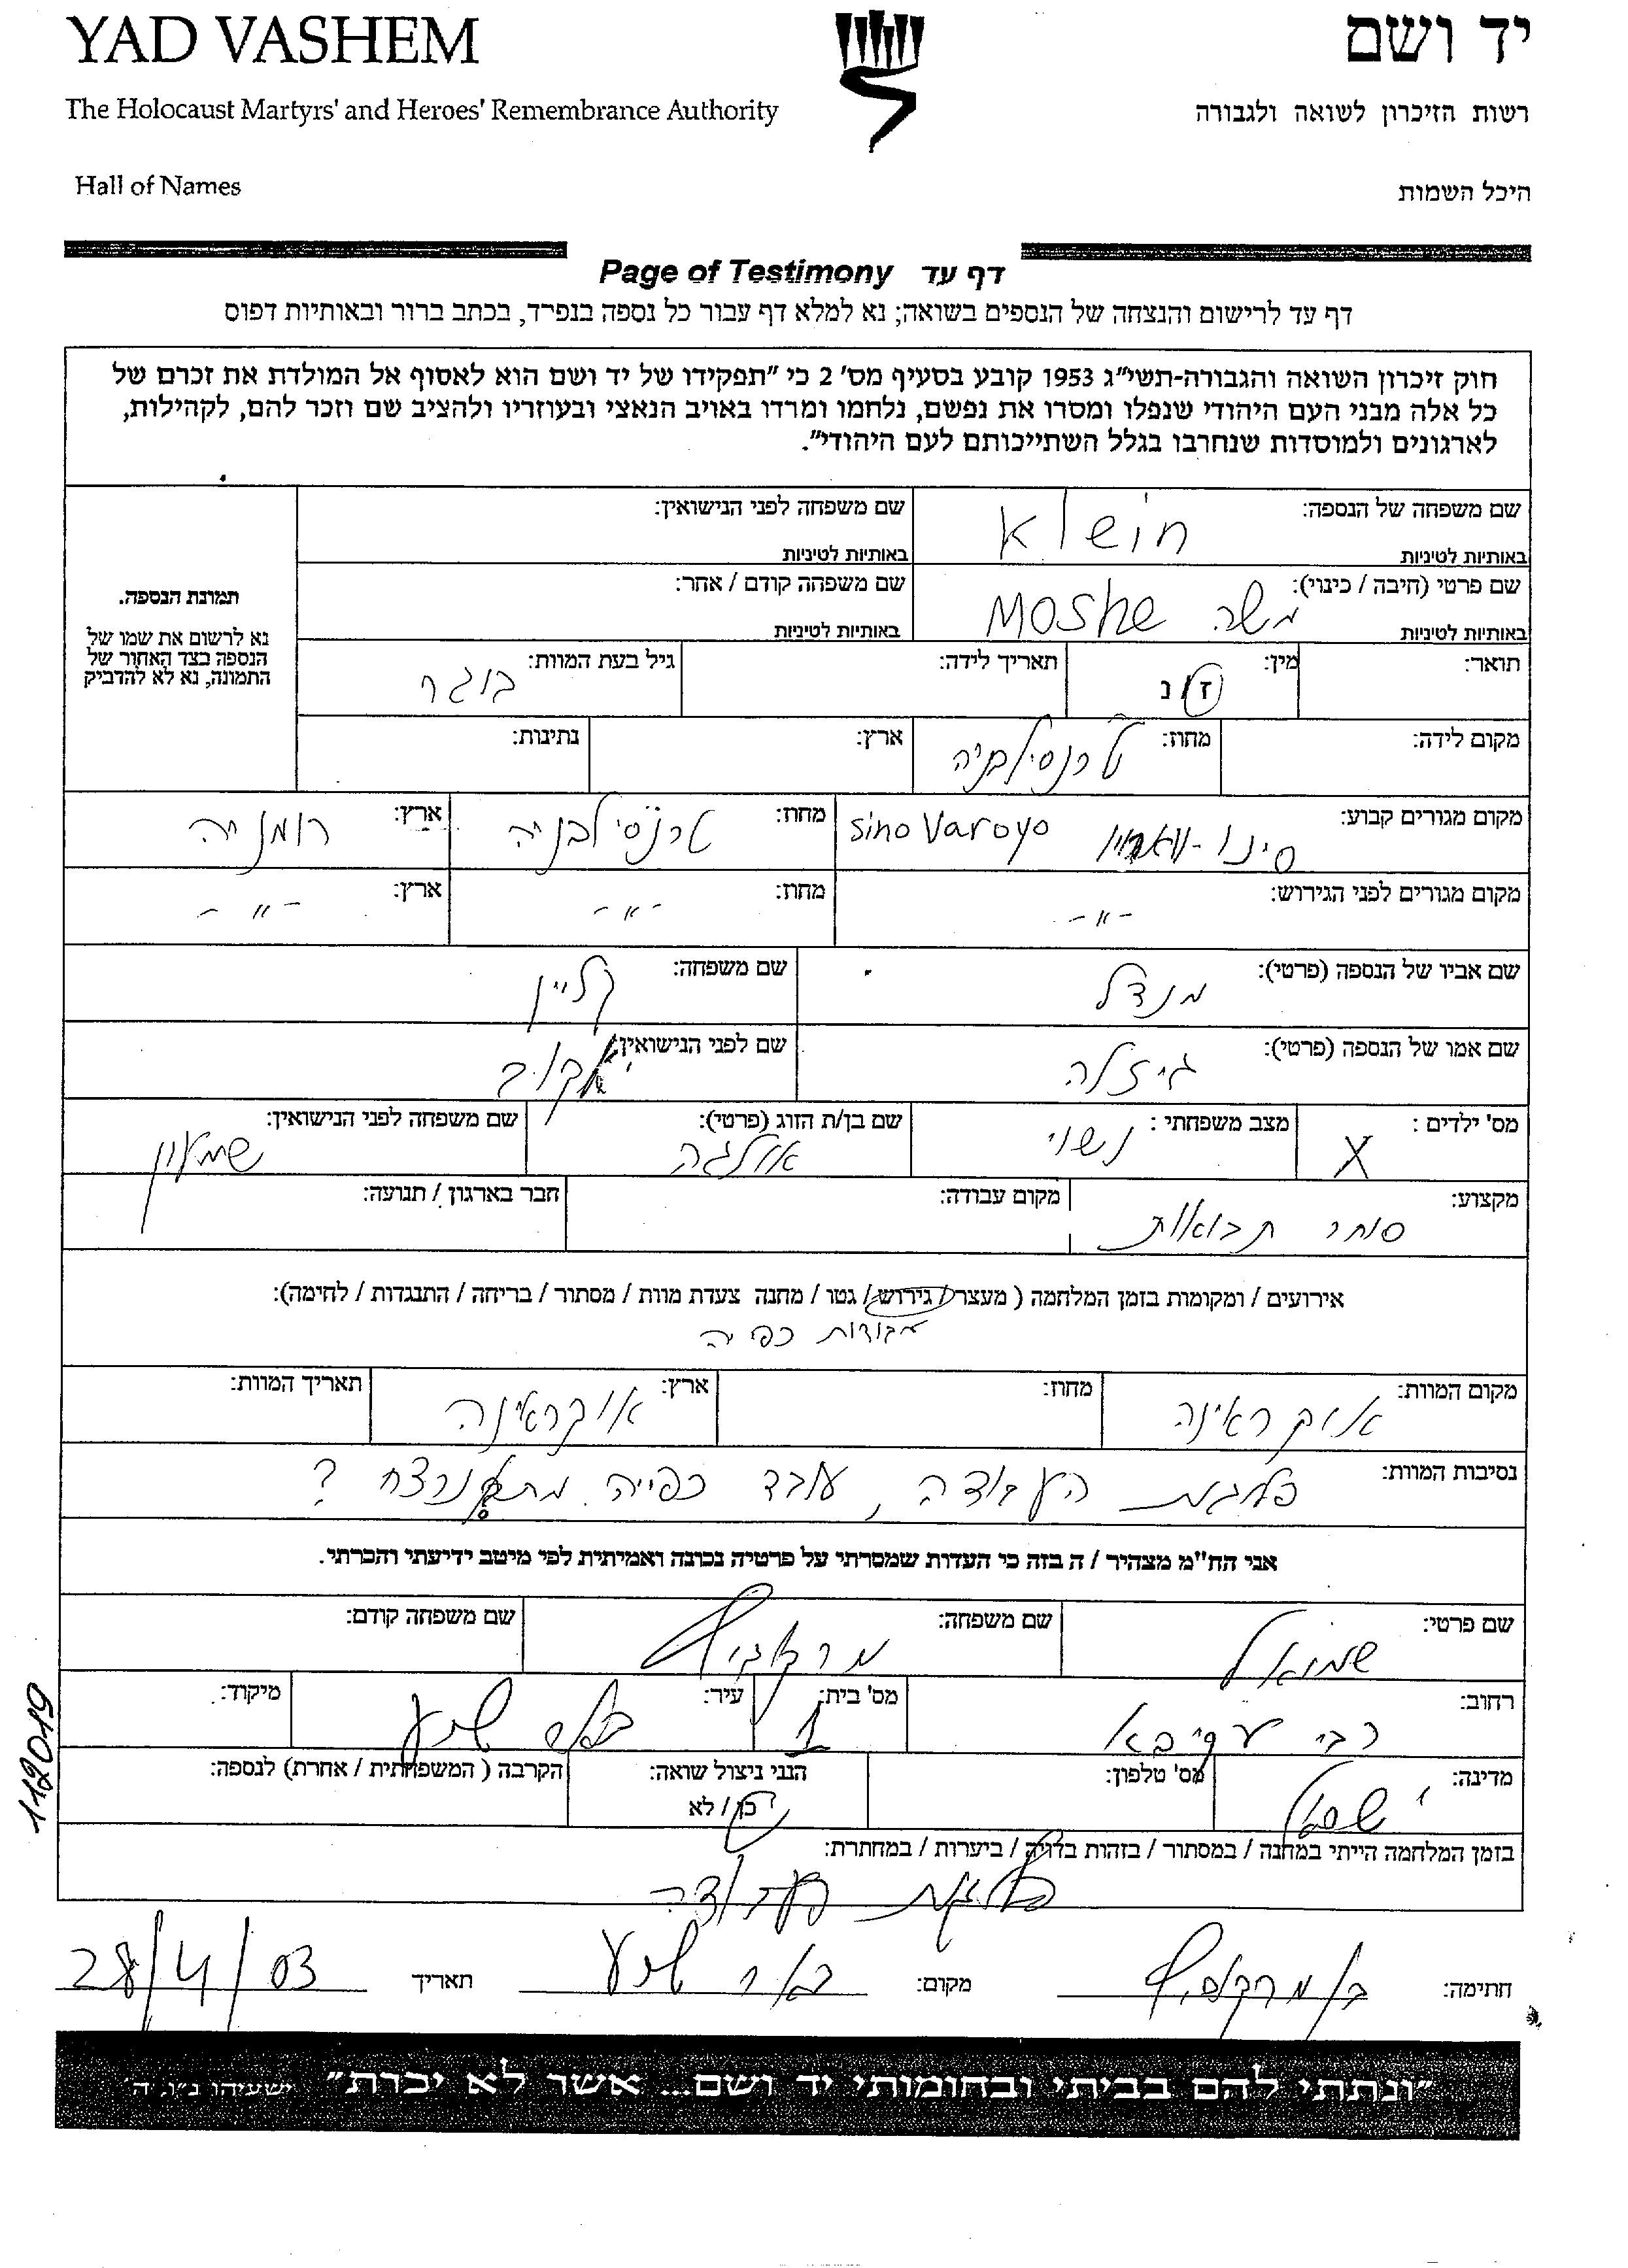 YAD VASHEM
יד ושם
The Holocaust Martyrs' and Heroes' Remembrance Authority
רשות הזיכרון לשואה ולגבורה
Hall of Names
היכל השמות
Page of Testimony דף עד
דף עד לרישום והנצחה של הנספים בשואה; נא למלא דף עבור כל נספה בנפרד, בכתב ברור ובאותיות דפוס
חוק זיכרון השואה והגבורה-תשי"ג 1953 קובע בסעיף מס' 2 כי "תפקידו של יד ושם הוא לאסוף אל המולדת את זכרם של
כל אלה מבני העם היהודי שנפלו ומסרו את נפשם, נלחמו ומרדו באויב הנאצי ובעוזריו ולהציב שם וזכר להם, לקהילות,
לארגונים ולמוסדות שנחרבו בגלל השתייכותם לעם היהודי".
שם משפחה של הנספה: שם משפחה לפני הנישואין:
באותיות לטיניות באותיות לטיניות
שם פרטי (חיבה / כינוי): משה Moshe שם משפחה קודם / אחר:
באותיות לטיניות באותיות לטיניות
תמונת הנספה.
נא לרשום את שמו של
הנספה בצד האחור של
התמונה, נא לא להדביק
תואר: מין: ז / נ תאריך לידה: גיל בעת המוות: בוגר
מקום לידה: מחוז: טרנסילבניה ארץ: נתינות:
מקום מגורים קבוע: סינו - Sino Varoyo מחוז: טרנסילבניה ארץ: רומניה
מקום מגורים לפני הגירוש: -"- מחוז: -"- ארץ: -"-
שם אביו של הנספה (פרטי): מנדל שם משפחה: קליין
שם אמו של הנספה (פרטי): גיזלה שם לפני הנישואין: יעקוב
מס' ילדים: X מצב משפחתי: נשוי שם בן/ת הזוג (פרטי): אולגה שם משפחה לפני הנישואין: שמעון
מקצוע: סוחר תבואות מקום עבודה: חבר בארגון / תנועה:
אירועים / ומקומות בזמן המלחמה ( מעצר / גירוש / גטו / מחנה צעדת מוות / מסתור / בריחה / התנגדות / לחימה):
עבודות כפיה
מקום המוות: אוקראינה מחוז: ארץ: אוקראינה תאריך המוות:
נסיבות המוות: פלוגת העבודה, עובד כפייה נרצח ?
אני הח"מ מצהיר / ה בזה כי העדות שמסרתי על פרטיה נכונה ואמיתית לפי מיטב ידיעתי והכרתי.
שם פרטי: שמואל שם משפחה: מרקוביץ שם משפחה קודם:
רחוב: רבי עקיבא מס' בית: 1 עיר: באר שבע מיקוד:
מדינה: ישראל מס' טלפון: הנני ניצול שואה: כן / לא הקרבה ( המשפחתית / אחרת) לנספה:
בזמן המלחמה הייתי במחנה / במסתור / בזהות בדויה / ביערות / במחתרת:
פלוגת עבודה
חתימה: מקום: באר שבע תאריך 28/4/03
"ונתתי להם בביתי ובחומותי יד ושם... אשר לא יכרת" ישעיהו נ"ו, ה'
112019